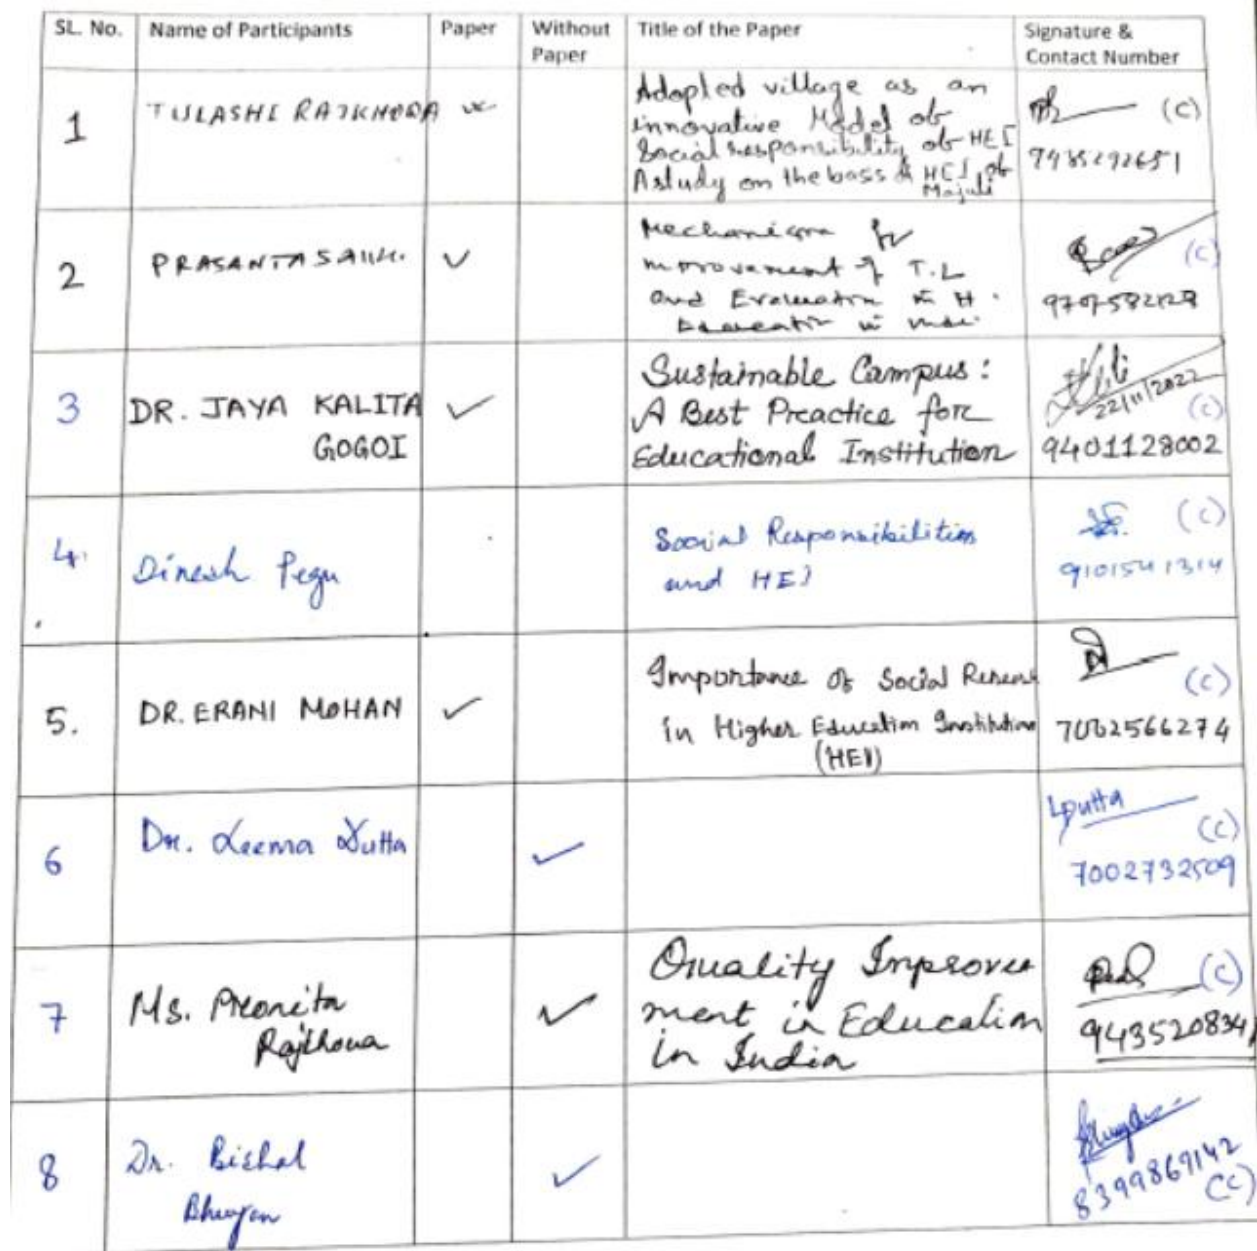 SL. No. Name of Participants Paper Without Paper Title of the Paper Signature & Contact Number
1 TULASHI RAJKHOWA Adopted village as an
innovative Model of
Social responsibility of HEI
A study on the bass of HEI of
Majuli
(C)
2 PRASANTA SAIKIA ✓ Mechanism for
improvement of T.L
and Evaluation in H.
Education in
(C)
3 DR. JAYA KALITA
GOGOI ✓ Sustainable Campus:
A Best Preactice forc
Educational Institution
22/11/2022
(C)
9401128002
4. Dinesh Pegu Social Responsibilities
and HEI
(C)
9101541314
5. DR. ERANI MOHAN ✓ Importance of Social
in Higher Education Institution
(HEI)
(C)
7002566274
6 Dr. Leema Dutta ✓
LDutta
(C)
7002732509
7 Ms. Preonita
Rajkhowa ✓ Quality Improve
ment in Education
in India
(C)
943520834
8 Dr. Bishal
Bhuyan ✓
8399869142
(C)